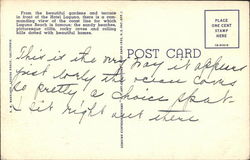 From the beautiful gardens and terrace
in front of the Hotel Laguna, there is a com-
manding view of the coast line for which
Laguna Beach is famous: the sandy beaches,
picturesque cliffs, rocky coves and rolling
hills dotted with beautiful homes.
PLACE
ONE CENT
STAMP
HERE
POST CARD
This is the way it appears
just lovely the ocean coves
so pretty a choice spot
I sit right out there